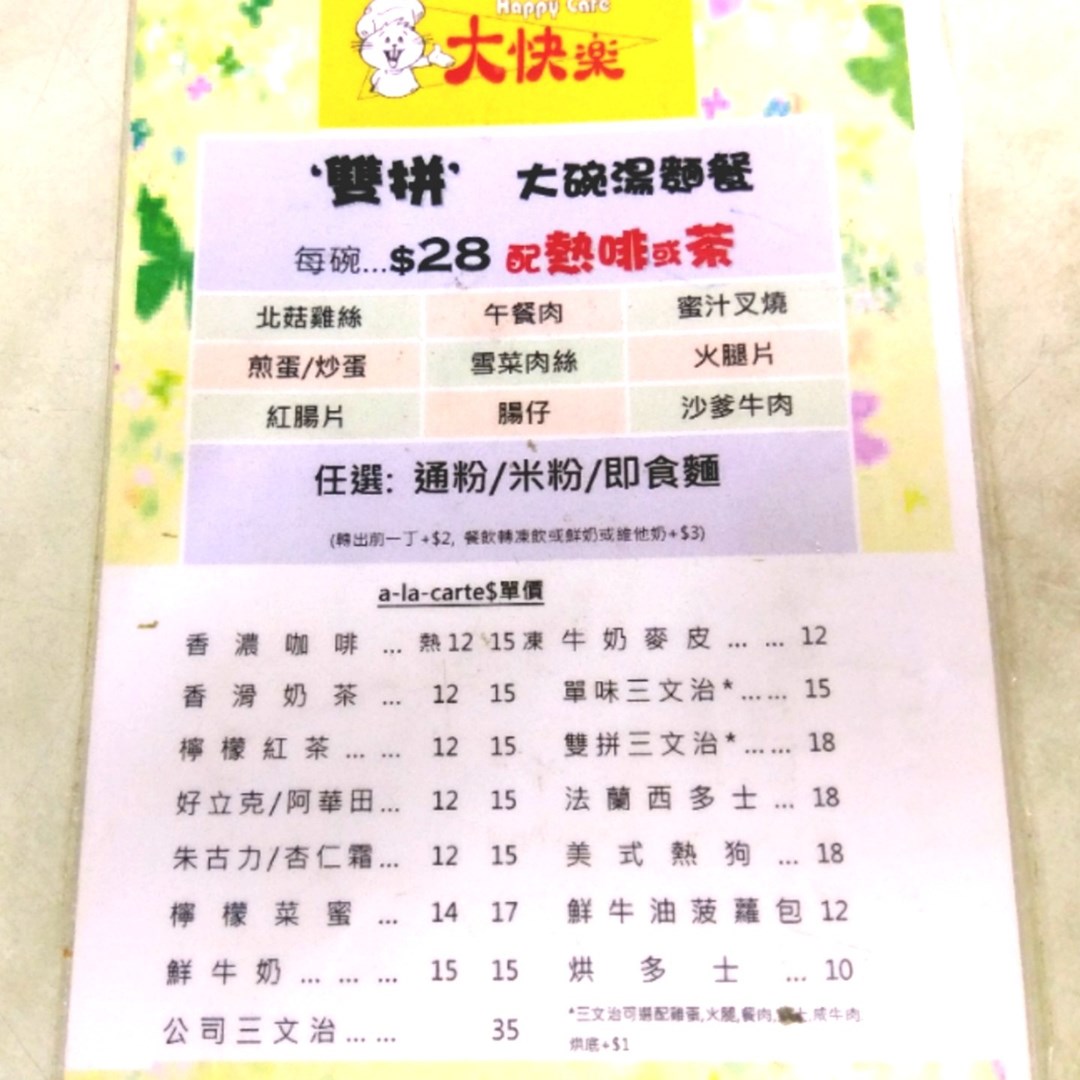 Happy Cafe
大快楽
'雙拼' 大碗湯麵餐
每碗...$28 配熱啡或茶
北菇雞絲 午餐肉 蜜汁叉燒
煎蛋/炒蛋 雪菜肉絲 火腿片
紅腸片 腸仔 沙爹牛肉
任選: 通粉/米粉/即食麵
(轉出前一丁+$2, 餐飲轉凍飲或鮮奶或維他奶+$3)
a-la-carte$單價
香濃咖啡 ... 熱12 15凍 牛奶麥皮 ... ... 12
香滑奶茶 ... 12 15 單味三文治* ... ... 15
檸檬紅茶 ... ... 12 15 雙拼三文治* ... ... 18
好立克/阿華田 ... 12 15 法蘭西多士 ... 18
朱古力/杏仁霜 ... 12 15 美式熱狗 ... 18
檸檬菜蜜 ... 14 17 鮮牛油菠蘿包 12
鮮牛奶 ... ... ... 15 15 烘多士 ... 10
公司三文治 ... ... 35
*三文治可選配雞蛋,火腿,餐肉,士,咸牛肉
烘底+$1